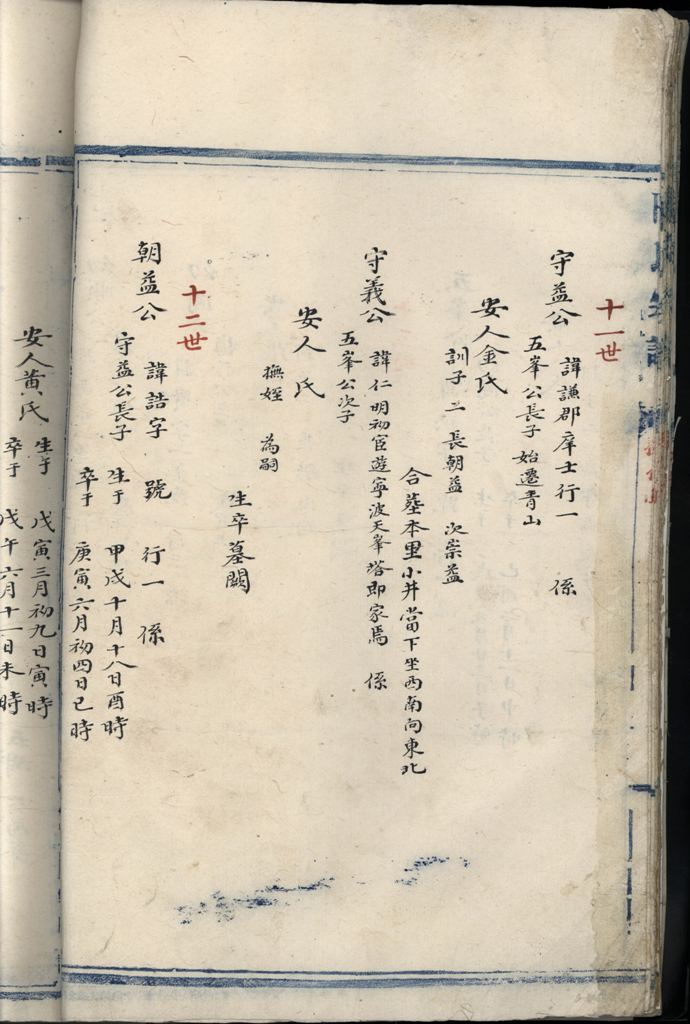 十一世
守益公 諱謙郡庠士行一 係
五峯公長子 始遷青山
安人金氏
訓子二 長朝益 次崇益
合墓本里小井當下坐西南向東北
守義公 諱仁明初宦遊寧波天峯塔即家焉 係
五峯公次子
安人 氏
撫姪 為嗣
生卒墓闕
十二世
朝益公 諱誥字 號 行一 係
守益公長子 生于 甲戌十月十八日酉時
卒于 庚寅六月初四日巳時
安人黄氏 生于 戊寅三月初九日寅時
卒于 戊午六月十一日未時